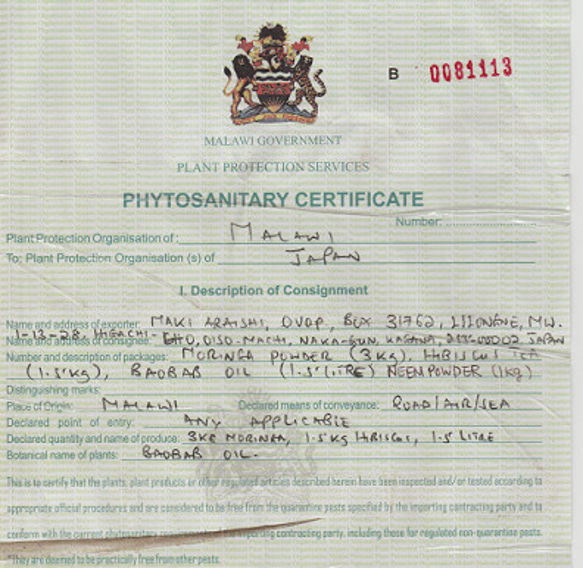 B 0081113
MALAWI GOVERNMENT
PLANT PROTECTION SERVICES
PHYTOSANITARY CERTIFICATE
Number:
Plant Protection Organisation of: MALAWI
To: Plant Protection Organisation (s) of JAPAN
I. Description of Consignment
Name and address of exporter: MAKI ARAISHI, OVOP, BOX 31762, LILONGWE, MW.
1-13-28, HIGACHI-
Name and address of consignee: OISO-MACHI, NAKA-GUN, JAPAN
Number and description of packages: MORINGA POWDER (3KG), HIBISCUS TEA
(1.5Kg), BAOBAB OIL (1.5 LITRE) NEEM POWDER (1KG)
Distinguishing marks:
Place of Origin: MALAWI Declared means of conveyance: ROAD/AIR/SEA
Declared point of entry: ANY APPLICABLE
Declared quantity and name of produce: 3KG MORINGA, 1.5KG HIBISCUS, 1.5 LITRE
Botanical name of plants: BAOBAB OIL.
This is to certify that the plants, plant products or other regulated articles described herein have been inspected and/or tested according to
appropriate official procedures and are considered to be free from the quarantine pests specified by the importing contracting party and to
conform with the current phytosanitary importing contracting party, including those for regulated non-quarantine pests.
*They are deemed to be practically free from other pests.